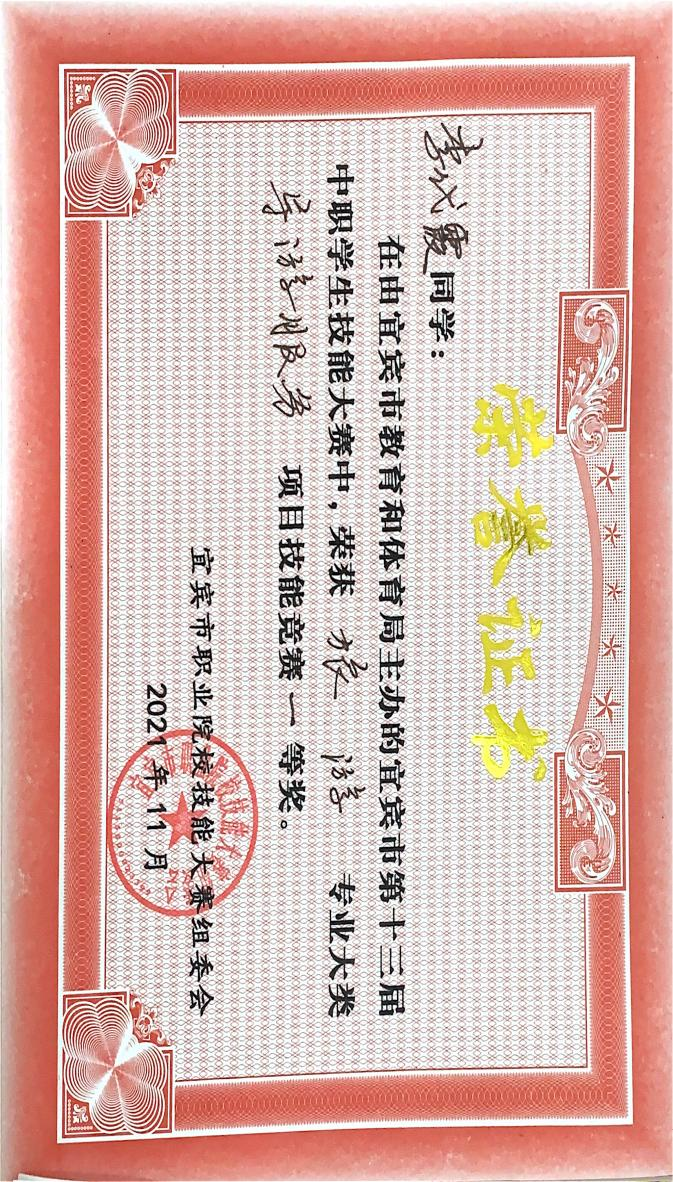 荣誉证书
李代霞同学：
在由宜宾市教育和体育局主办的宜宾市第十三届
中职学生技能大赛中，荣获 旅游 专业大类
导游服务 项目技能竞赛一等奖。
宜宾市职业院校技能大赛组委会
2021年11月